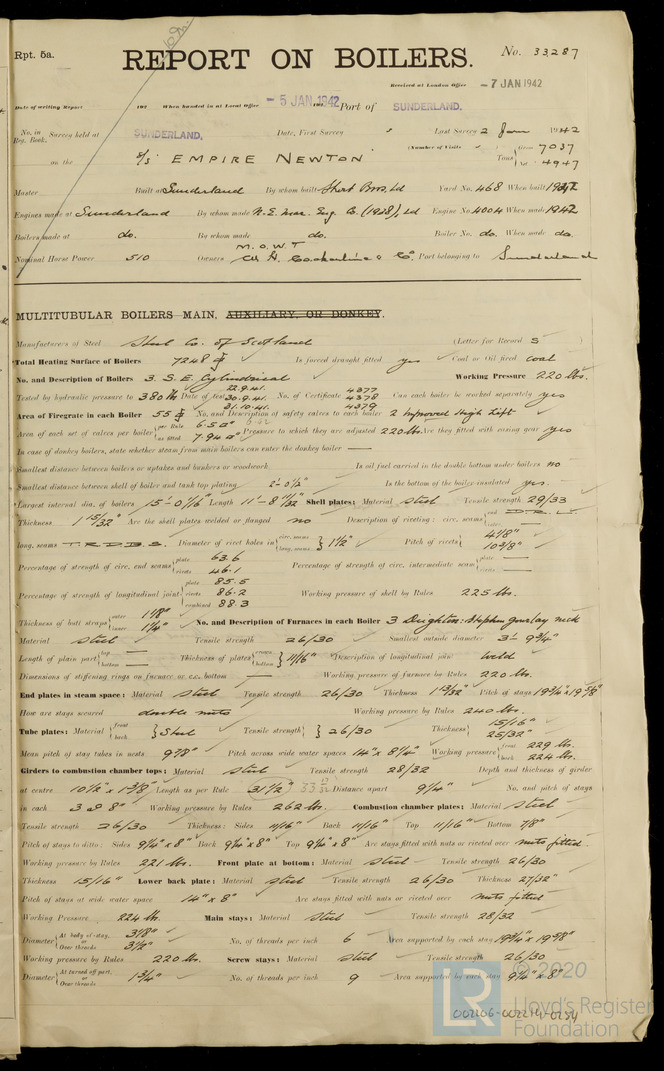 Rpt. 5a.
REPORT ON BOILERS.
No. 33287
Received at London Office - 7 JAN 1942
Date of writing Report 192 When handed in at Local Office - 5 JAN 1942 Port of SUNDERLAND.
No. in Reg. Book. Survey held at SUNDERLAND. Date, First Survey Last Survey 2 Jan 1942
on the S/S "EMPIRE NEWTON" (Number of Visits Tons Gross 7037 Net 4947
Master Built at Sunderland By whom built Short Bros, Ld Yard No. 468 When built 1942
Engines made at Sunderland By whom made N.E. Mar. Eng. Co. (1938), Ld Engine No. 4004 When made 1942
Boilers made at do. By whom made do. Boiler No. do. When made do.
M.O.W.T
Nominal Horse Power 510 Owners W. H. Cockerline & Co. Port belonging to Sunderland
MULTITUBULAR BOILERS MAIN, AUXILIARY, OR DONKEY.
Manufacturers of Steel Steel Co. of Scotland (Letter for Record S )
Total Heating Surface of Boilers 7248 Is forced draught fitted yes Coal or Oil fired coal
No. and Description of Boilers 3. S.E. Cylindrical Working Pressure 220 lbs.
Tested by hydraulic pressure to 380 lb Date of test 22.9.41. 30.9.41. 31.10.41. No. of Certificate 4377 4378 4379 Can each boiler be worked separately yes
Area of Firegrate in each Boiler 55 No. and Description of safety valves to each boiler 2 Improved High Lift
Area of each set of valves per boiler per Rule 6.50" as fitted 7.94" Pressure to which they are adjusted 220 lbs. Are they fitted with easing gear yes
In case of donkey boilers, state whether steam from main boilers can enter the donkey boiler —
Smallest distance between boilers or uptakes and bunkers or woodwork Is oil fuel carried in the double bottom under boilers no
Smallest distance between shell of boiler and tank top plating 2'-0½" Is the bottom of the boiler insulated yes.
Largest internal dia. of boilers 15'-0 1/16" Length 11'-8 11/32" Shell plates: Material steel Tensile strength 29/33
Thickness 1 15/32" Are the shell plates welded or flanged no Description of riveting: circ. seams end D.R.L. inter. —
long. seams T.R.D.B.S. Diameter of rivet holes in circ. seams long. seams 1½" Pitch of rivets 4 1/8" 10 3/8"
Percentage of strength of circ. end seams plate 63.6 rivets 46.1 Percentage of strength of circ. intermediate seam plate — rivets —
Percentage of strength of longitudinal joint plate 85.5 rivets 86.2 combined 88.3 Working pressure of shell by Rules 225 lbs.
Thickness of butt straps outer 1 1/8" inner 1 1/4" No. and Description of Furnaces in each Boiler 3 Deighton: Stephen Gourlay neck
Material steel Tensile strength 26/30 Smallest outside diameter 3'-9¾"
Length of plain part top — bottom — Thickness of plates crown bottom 11/16" Description of longitudinal joint Weld
Dimensions of stiffening rings on furnace or c.c. bottom — Working pressure of furnace by Rules 220 lbs.
End plates in steam space: Material steel Tensile strength 26/30 Thickness 1 13/32" Pitch of stays 19¾" x 19 5/8"
How are stays secured double nuts Working pressure by Rules 240 lbs.
Tube plates: Material front back Steel Tensile strength 26/30 Thickness 15/16" 25/32"
Mean pitch of stay tubes in nests 9 7/8" Pitch across wide water spaces 14" x 8¼" Working pressure front 229 lbs. back 224 lbs.
Girders to combustion chamber tops: Material steel Tensile strength 28/32 Depth and thickness of girder
at centre 10½" x 1 3/8" Length as per Rule 31½" Distance apart 9¼" No. and pitch of stays
in each 3 @ 8" Working pressure by Rules 262 lbs. Combustion chamber plates: Material steel
Tensile strength 26/30 Thickness: Sides 11/16" Back 11/16" Top 11/16" Bottom 7/8"
Pitch of stays to ditto: Sides 9¼" x 8" Back 9¼" x 8" Top 9¼" x 8" Are stays fitted with nuts or riveted over nuts fitted.
Working pressure by Rules 221 lbs. Front plate at bottom: Material steel Tensile strength 26/30
Thickness 15/16" Lower back plate: Material steel Tensile strength 26/30 Thickness 27/32"
Pitch of stays at wide water space 14" x 8" Are stays fitted with nuts or riveted over nuts fitted
Working Pressure 224 lb. Main stays: Material steel Tensile strength 28/32
Diameter At body of stay, or Over threads 3 1/8" 3½" No. of threads per inch 6 Area supported by each stay 19¾" x 19 5/8"
Working pressure by Rules 220 lbs. Screw stays: Material steel Tensile strength 26/30
Diameter At turned off part, or Over threads 1¾" No. of threads per inch 9 Area supported by each stay 9¼" x 8"
© 2020
LR
Lloyd's Register
Foundation
002206-002214-0234